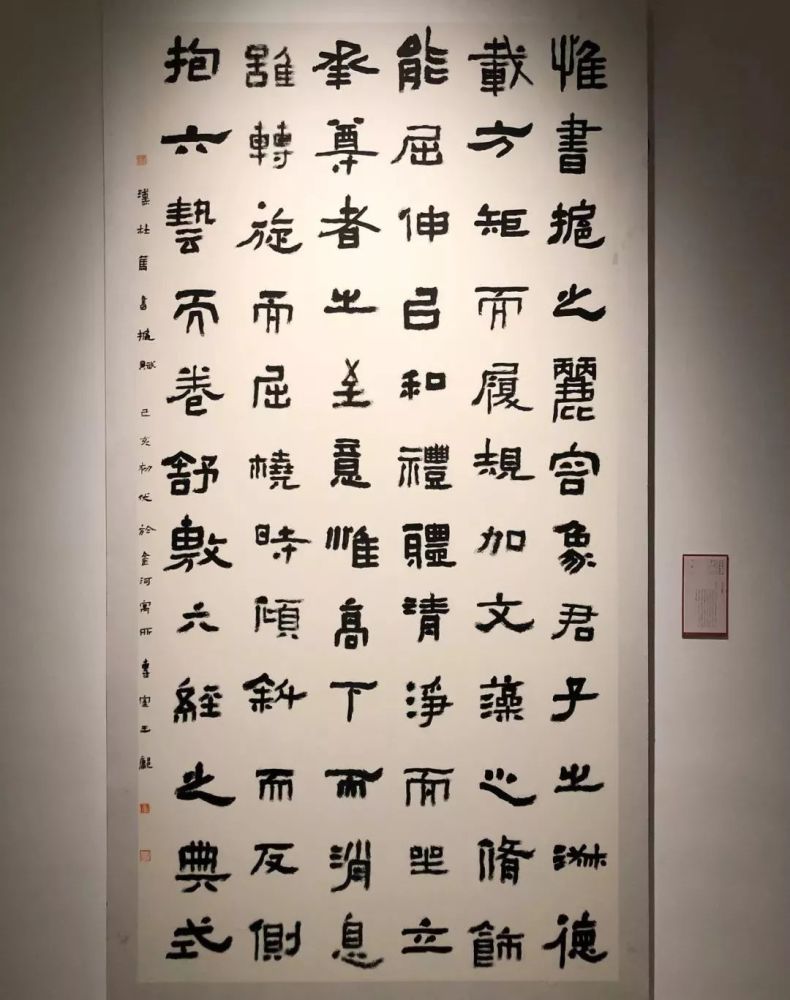 惟書槴之麗容象君子之淑德
載方矩而履規加文藻之脩飾
能屈伸㠯和禮體清淨而坐立
承尊者之至意惟高下而消息
雖轉旋而屈橈時傾斜而反側
抱六藝而卷舒敷六經之典式
漢杜篤書槴賦己亥初伏於金河寓所